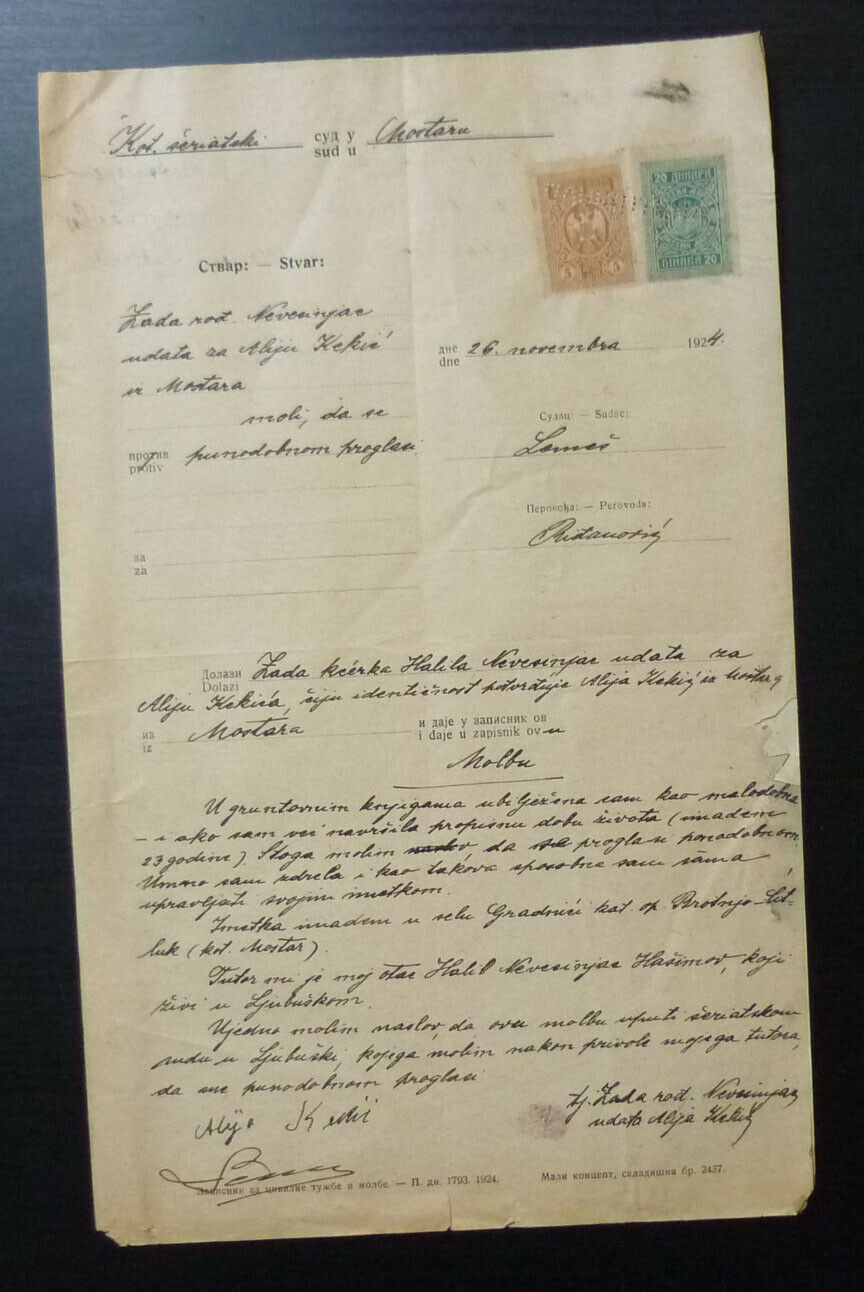 Kot. šeriatski суд у Mostaru
sud u
20 ДИНАРА
5 5
20
Ствар: — Stvar:
Zada rođ. Nevesinjac
udata za Aliju Kekić
iz Mostara
moli, da se
против
protiv punodobnom proglasi
дне
dne 26. novembra 1924.
Судац: — Sudac:
Lemeš
Перовођа: — Perovođa:
Ridanović
за
za
Долази
Dolazi Zada kćerka Halila Nevesinjac udata za
Aliju Kekića, čiju identičnost potvrđuje Alija Kekić iz Mostara
из
iz Mostara и даје у записник ов
i daje u zapisnik ov-u
Molbu
U gruntovnim knjigama ubilježena sam kao malodobna
– i ako sam već navršila propisnu dobu života (imadem
23 godine). Stoga molim da se proglasi punodobnom
Umno sam zdrela i kao takova sposobna sam sama
upravljati svojim imetkom.
Imetka imadem u selu Gradnići kat. op. Brotnjo-Čit-
luk (kot. Mostar).
Tutor mi je moj otac Halil Nevesinjac Hašimov, koji
živi u Ljubuškom.
Ujedno molim naslov, da ovu molbu uputi šeriatskom
sudu u Ljubuški, kojega molim nakon privole mojega tutora,
da me punodobnom proglasi
tj. Zada rođ. Nevesinjac
udata Alija Kekić
Alija Kekić
Записник за цивилне тужбе и молбе. — П. дн. 1793. 1924. Мали концепт, складишни бр. 2437.